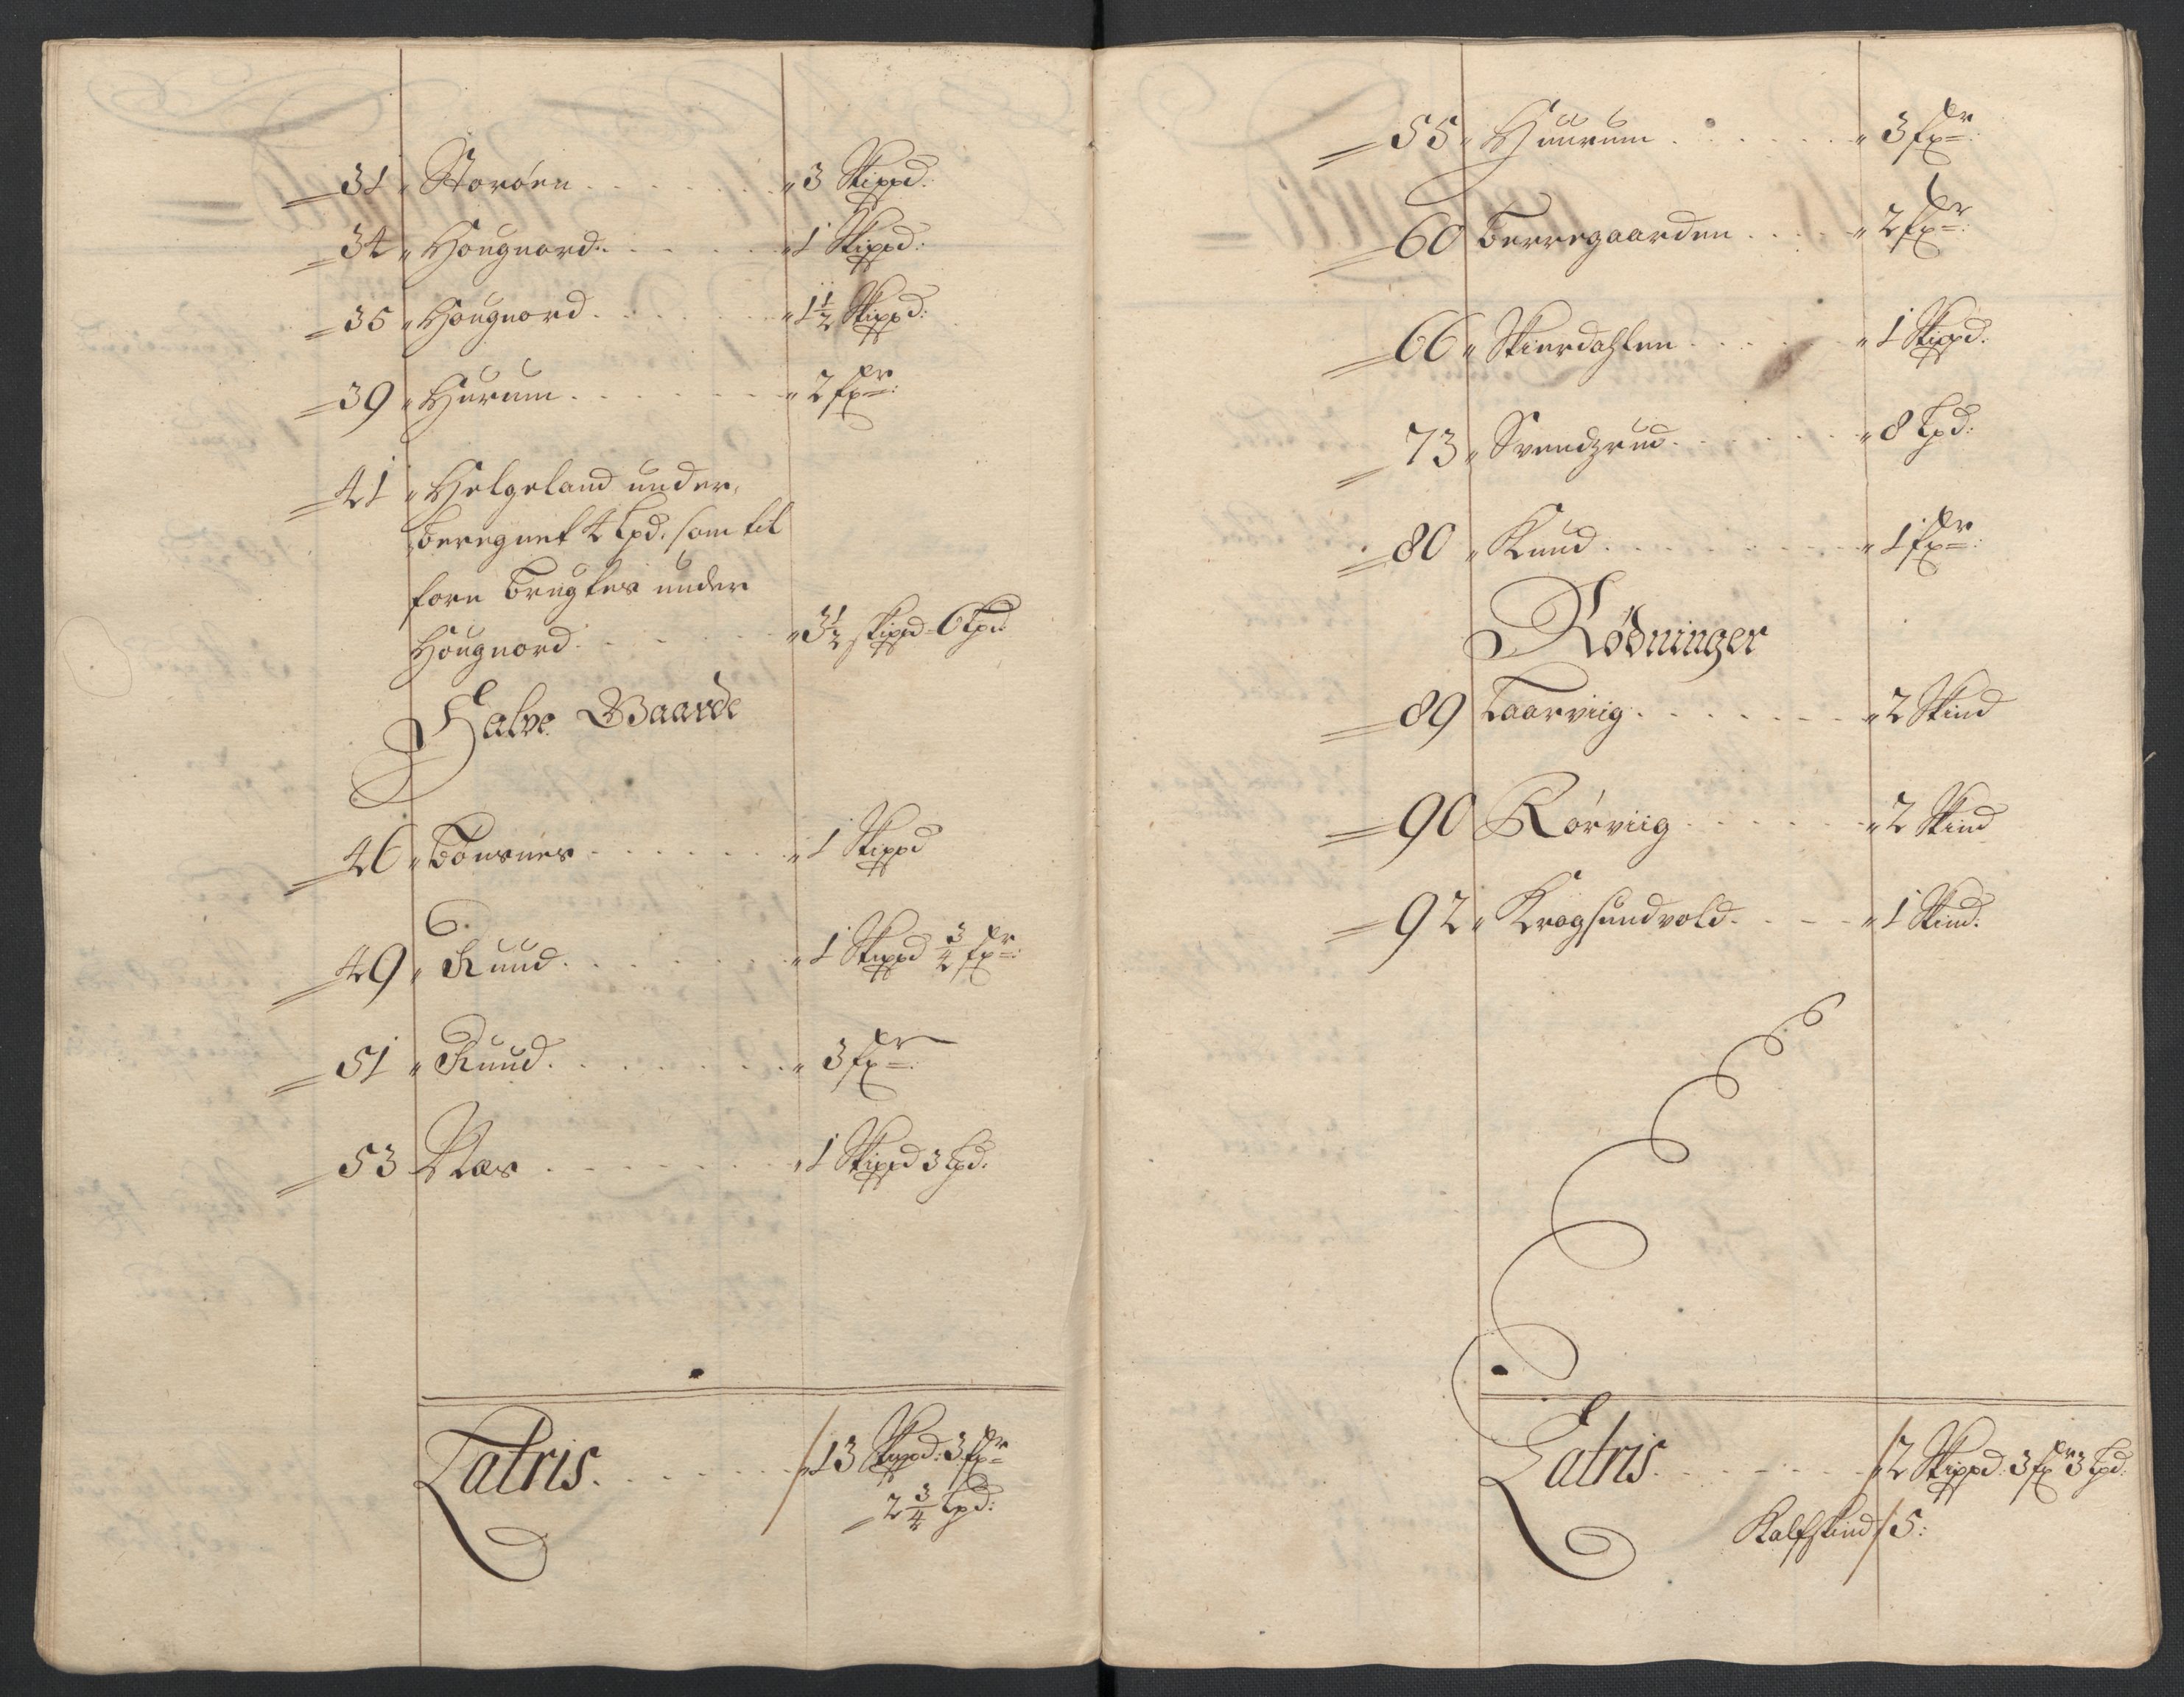 31 „ Storöen . . . . . . „ 3 Skippd:
34 „ Hougnord . . . . . „ 1 Skippd:
35 „ Hougnord . . . . . „ 1½ Skippd:
39 „ Hurum . . . . . . „ 2 fr:
41 „ Helgeland under,
beregnet 4 Lpd. som til
forn brugtes under
Hougnord . . . . „ 3½ skippd - 6 Lpd:
Halve Gaarde
46 „ Bönsnes . . . . . . „ 1 Skippd
49 „ Ruud . . . . . . „ 1 Skippd ¾ fr:
51 „ Ruud . . . . . . . „ 3 fr:
53 Næs . . . . . . „ 1 Skippd 3 Lpd.
Latris . . . . . . „ 13 Skippd: 3 fr
2¾ Lpd:
55 „ Huurum . . . . . . „ 3 fr:
60 Berregaarden . . . . „ 2 fr:
66 „ Skierdahlen . . . . . „ 1 Skippd:
73 „ Svendzrud . . . . . . „ 8 Lpd:
80 „ Ruud . . . . . . . . „ 1 fr:
Rödninger
89 Taarviig . . . . . . „ 2 Skind
90 Rörviig . . . . . . „ 2 Skind
92 „ Krogsundvold . . . „ 1 Skind.
Latris . . . . . . „ 2 Skippd: 3 fr 3 Lpd:
Kalfskind / 5: